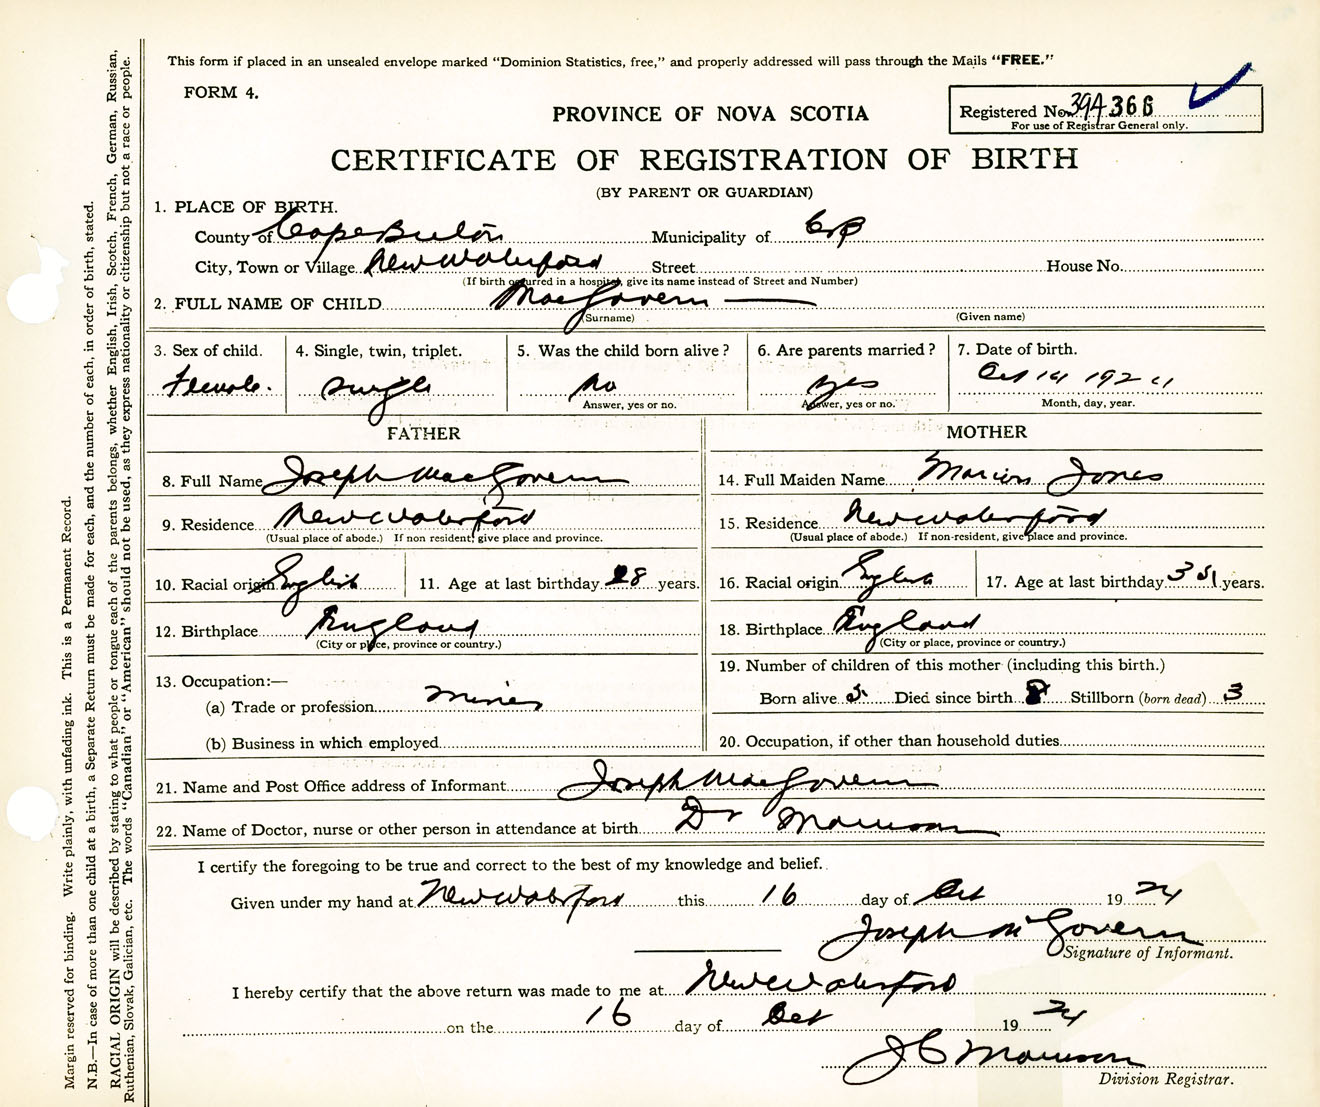 This form if placed in an unsealed envelope marked "Dominion Statistics, free," and properly addressed will pass through the Mails "FREE."
FORM 4.
PROVINCE OF NOVA SCOTIA
Registered No. 39A 366
For use of Registrar General only.
CERTIFICATE OF REGISTRATION OF BIRTH
(BY PARENT OR GUARDIAN)
1. PLACE OF BIRTH.
County of Cape Breton Municipality of CB
City, Town or Village New Waterford Street House No.
(If birth occurred in a hospital, give its name instead of Street and Number)
2. FULL NAME OF CHILD MacGovern —
(Surname) (Given name)
3. Sex of child. 4. Single, twin, triplet. 5. Was the child born alive? 6. Are parents married? 7. Date of birth.
Female. single no yes Oct 14 1924
Answer, yes or no. Answer, yes or no. Month, day, year.
FATHER MOTHER
8. Full Name Joseph MacGovern 14. Full Maiden Name Marion Jones
9. Residence New Waterford 15. Residence New Waterford
(Usual place of abode.) If non resident, give place and province. (Usual place of abode.) If non-resident, give place and province.
10. Racial origin English 11. Age at last birthday 28 years. 16. Racial origin English 17. Age at last birthday years.
12. Birthplace England 18. Birthplace England
(City or place, province or country.) (City or place, province or country.)
19. Number of children of this mother (including this birth.)
13. Occupation:—
(a) Trade or profession miner Born alive 5 Died since birth Stillborn (born dead) 3
(b) Business in which employed 20. Occupation, if other than household duties
21. Name and Post Office address of Informant Joseph MacGovern
22. Name of Doctor, nurse or other person in attendance at birth Dr Morrison
I certify the foregoing to be true and correct to the best of my knowledge and belief.
Given under my hand at New Waterford this 16 day of Oct 1924
Joseph McGovern
Signature of Informant.
I hereby certify that the above return was made to me at New Waterford
on the 16 day of Oct 1924
J C Morrison
Division Registrar.
Margin reserved for binding. Write plainly, with unfading ink. This is a Permanent Record.
N.B.—In case of more than one child at a birth, a Separate Return must be made for each, and the number of each, in order of birth, stated.
RACIAL ORIGIN will be described by stating to what people or tongue each of the parents belongs, whether English, Irish, Scotch, French, German, Russian,
Ruthenian, Slovak, Galician, etc. The words "Canadian" or "American" should not be used, as they express nationality or citizenship but not a race or people.